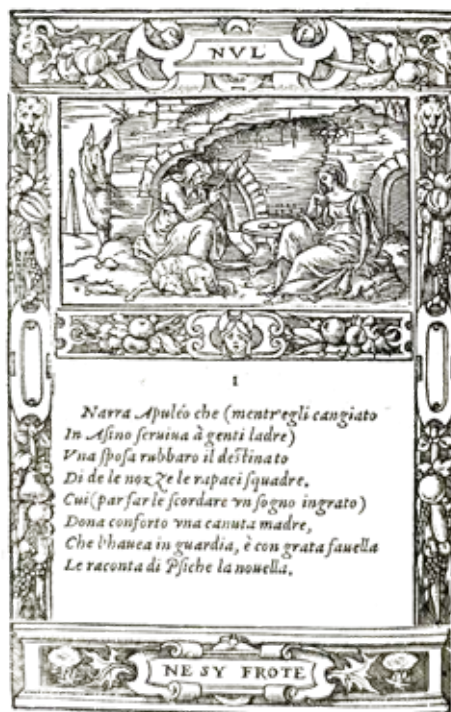 NVL'
1
Narra Apuléo che (mentr'egli cangiato
In Asino seruiua à genti ladre)
Vna sposa rubbaro il destinato
Di de le nozze le rapaci squadre.
Cui (par farle scordare vn sogno ingrato)
Dona conforto vna canuta madre,
Che l'hauea in guardia, è con grata fauella
Le raconta di Psiche la nouella.
NE SY FROTE